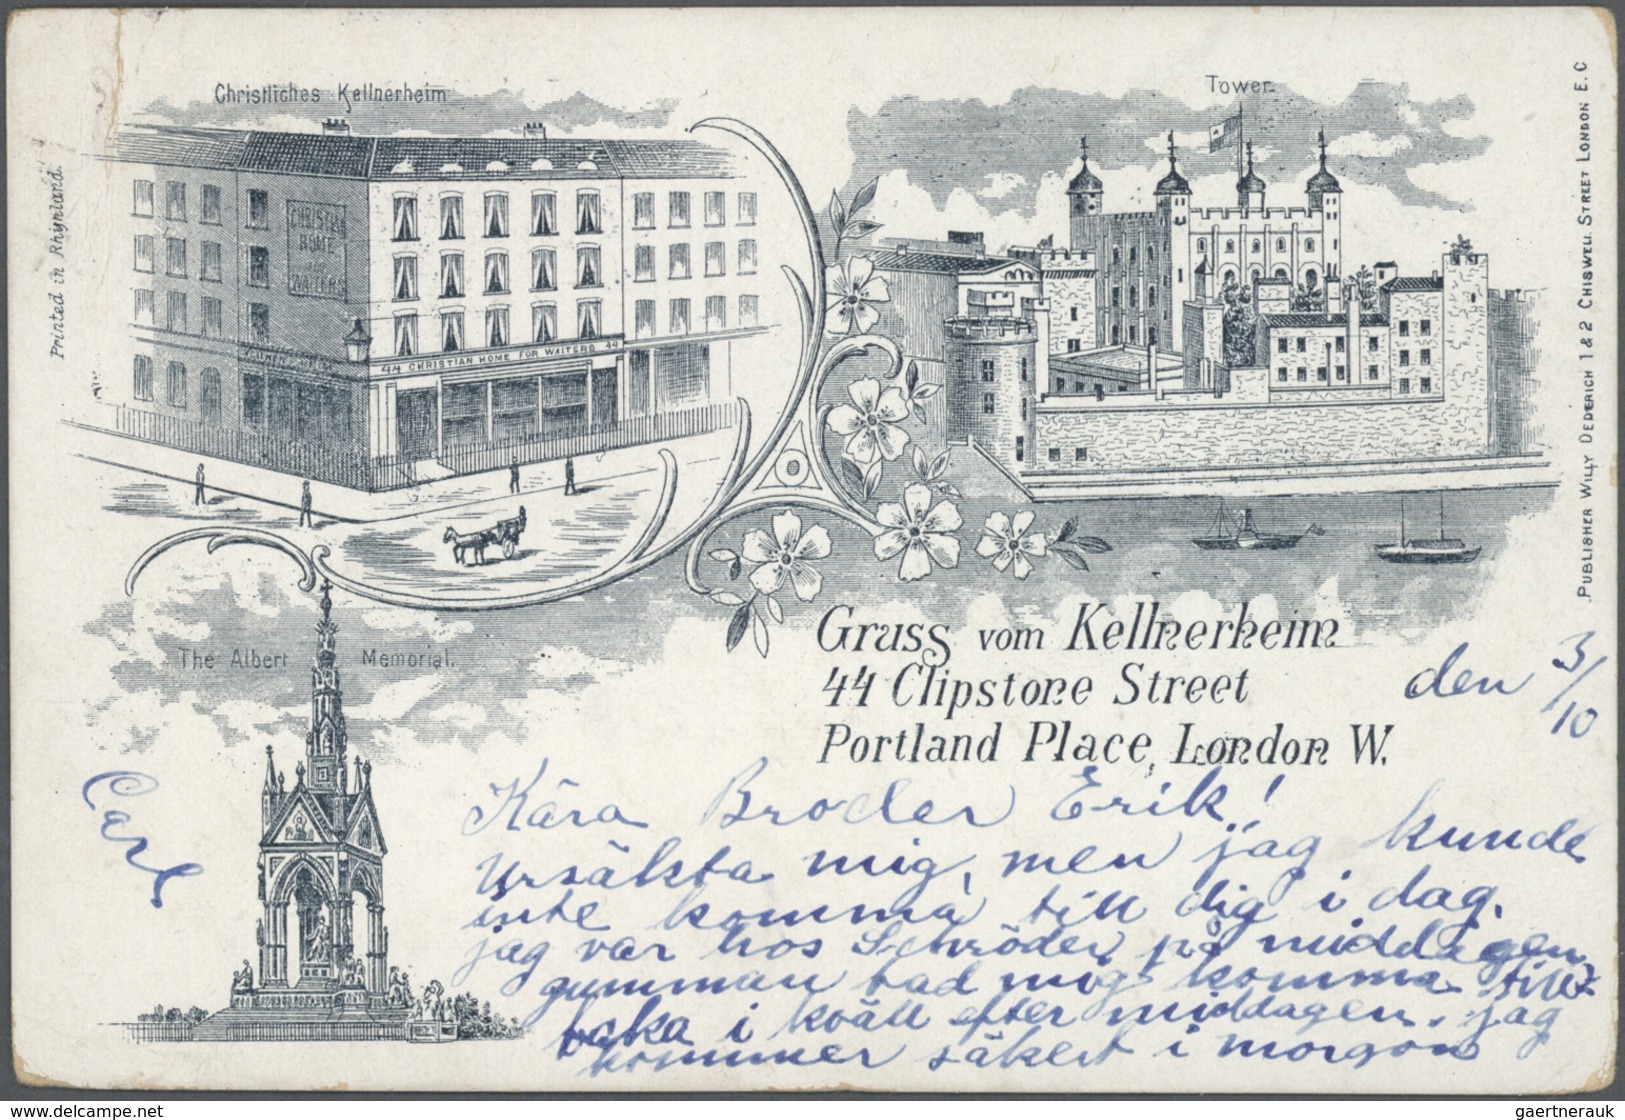 Christliches Kellnerheim
Tower.
Printed in Rhijnland.
CHRISTIAN
HOME
FOR
WAITERS
44 CHRISTIAN HOME FOR WAITERS 44
PUBLISHER WILLY DEDERICH 1 & 2 CHISWELL STREET LONDON E.C
The Albert Memorial.
Gruss vom Kellnerheim
44 Clipstone Street
Portland Place, London W.
den 3/10
Carl
Kära Broder Erik!
Ursäkta mig, men jag kunde
inte komma till dig i dag.
jag var hos Schröder på middagen
gumman bad mig komma till-
baka i kväll efter middagen. jag
kommer säkert i morgon
www.delcampe.net
gaertnerauk